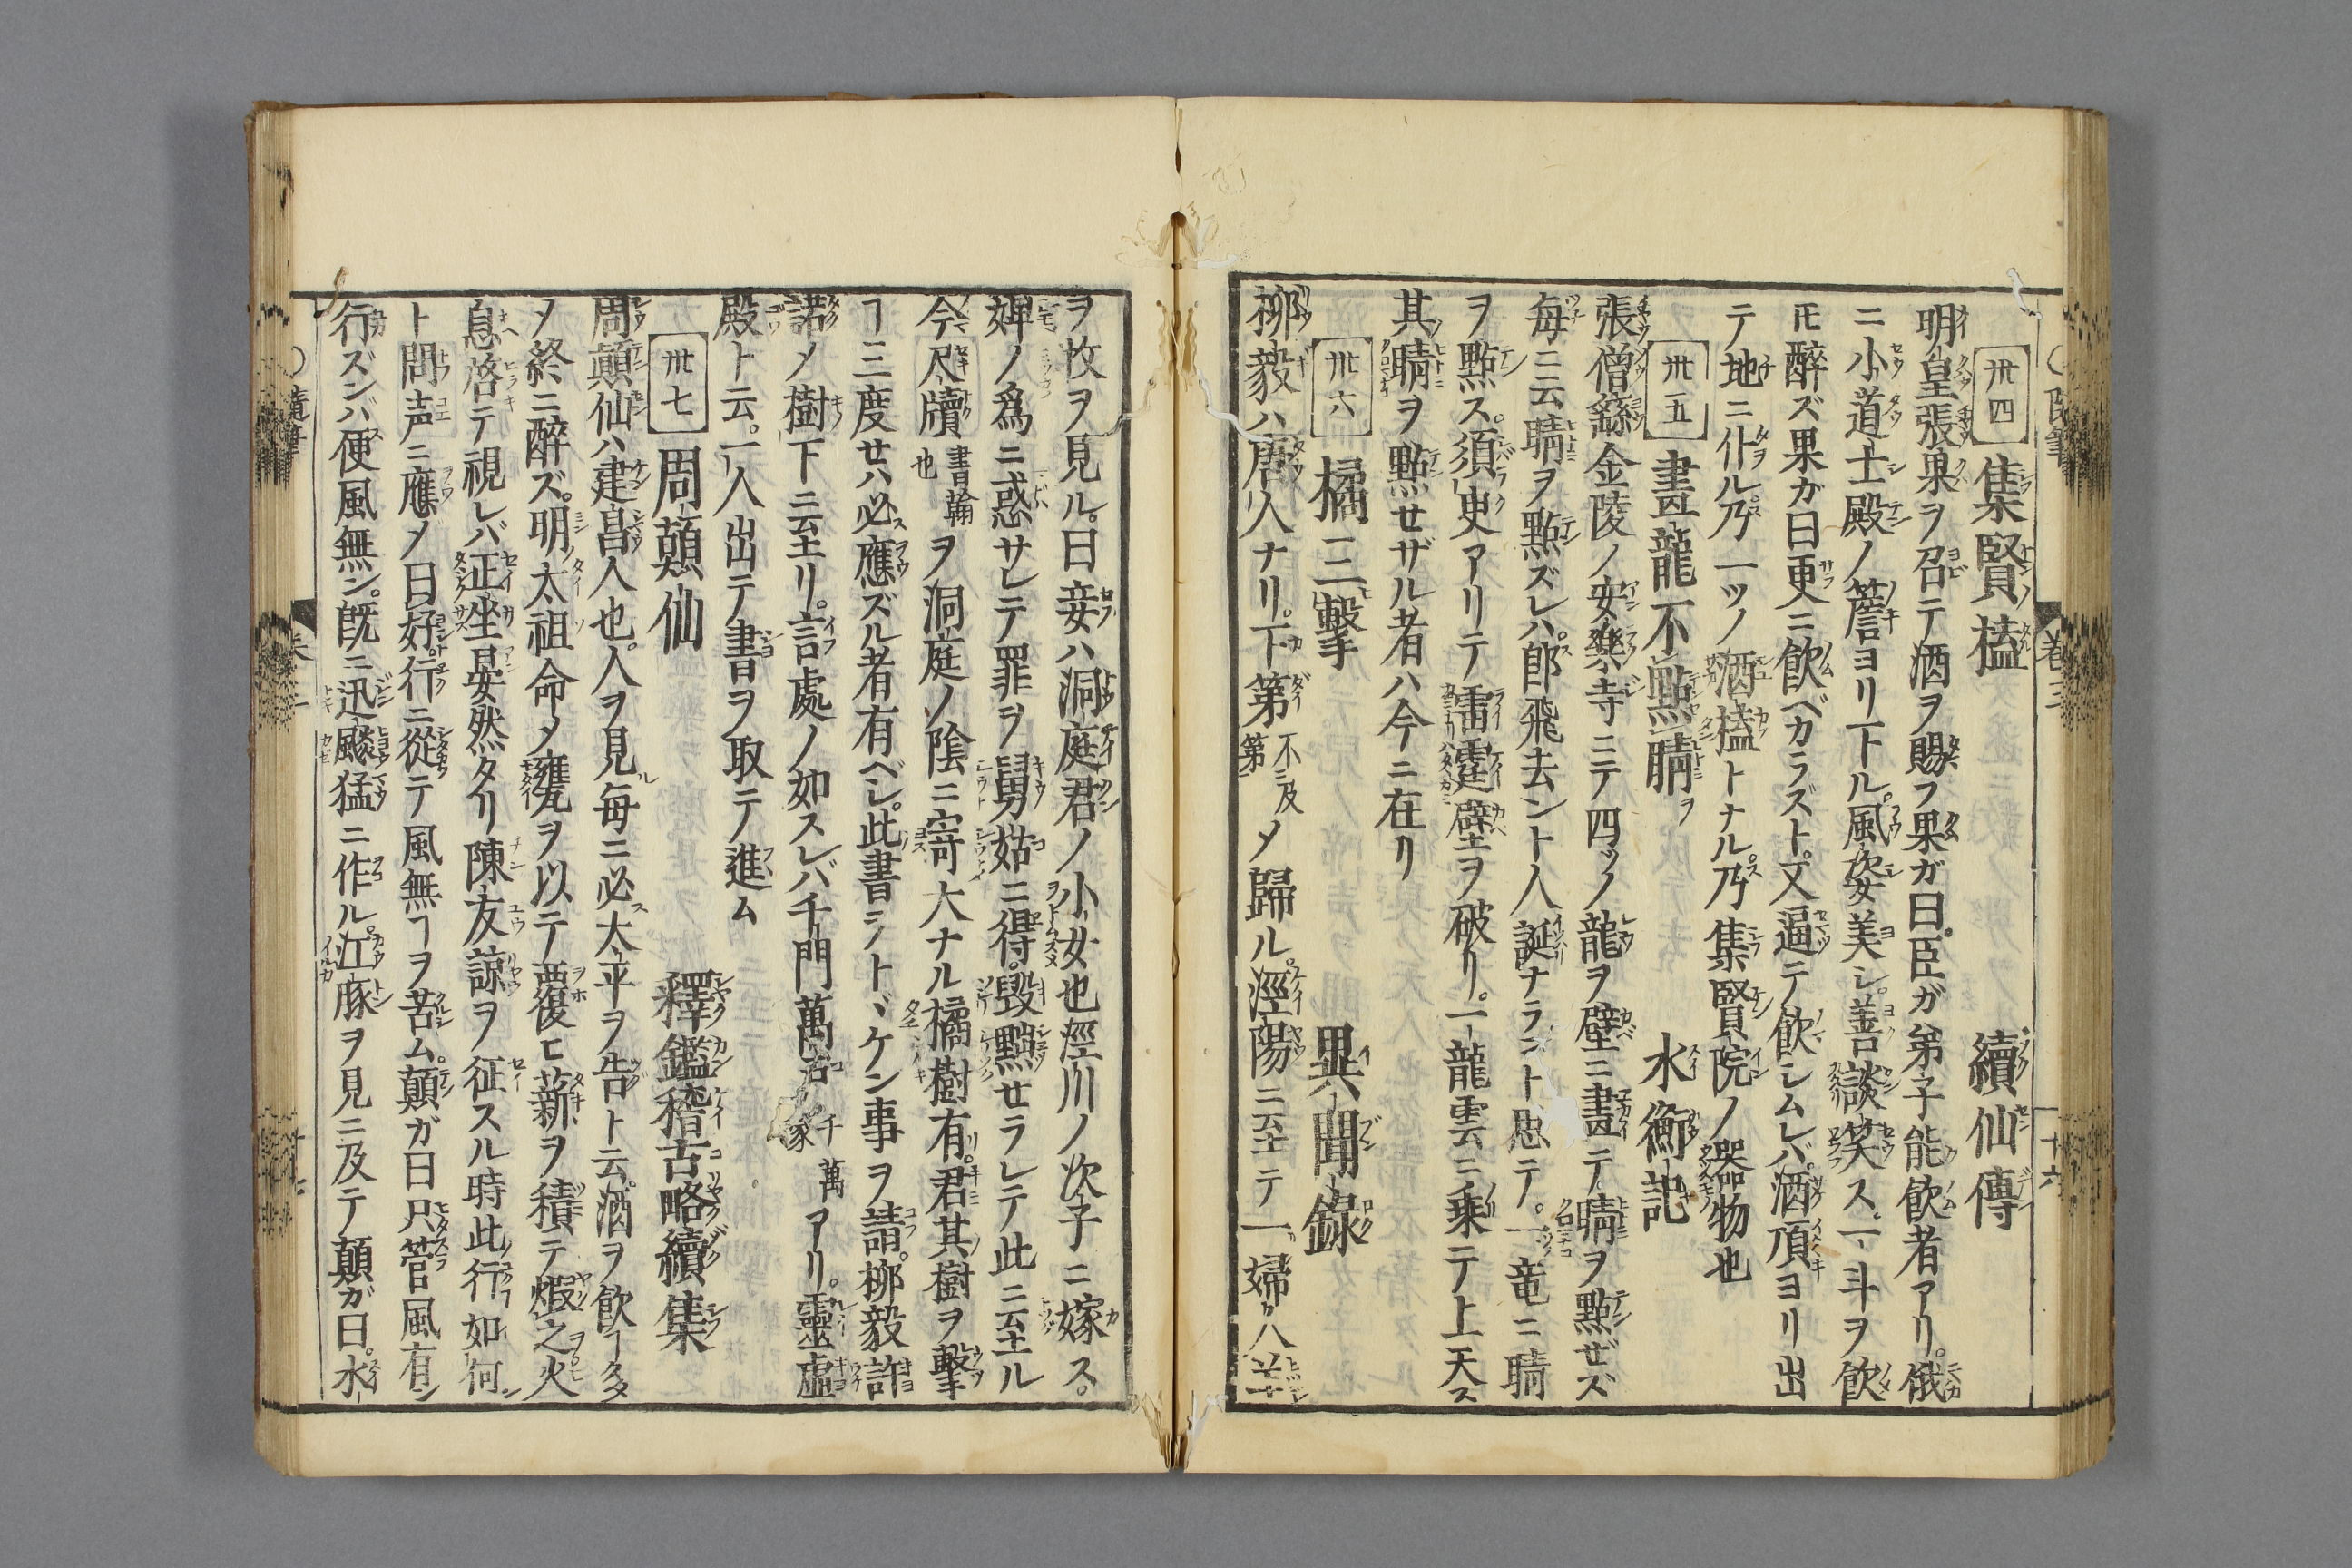 卅四 集賢榼 續仙傳
明皇張果ヲ召テ酒ヲ賜フ果ガ曰臣ガ弟子能飲者アリ俄
ニ小道士殿ノ簷ヨリ下ル風姿美シ善談笑ス一斗ヲ飲
モ醉ズ果ガ曰更ニ飲ベカラズト又逼テ飲シムレバ酒頂ヨリ出
テ地ニ仆ル乃一ツノ酒榼トナル乃集賢院ノ器物也
卅五 畫龍不點睛 水衡記
張僧繇金陵ノ安樂寺ニテ四ツノ龍ヲ壁ニ畫テ睛ヲ點ぜズ
毎ニ云睛ヲ點ズレハ即飛去ント人誕ナラント思テ一竜ニ睛
ヲ點ス須臾アリテ雷霆壁ヲ破リ一龍雲ニ乗テ上天ス
其睛ヲ點せザル者ハ今ニ在リ
卅六 橘三擊 異聞錄
柳毅ハ唐人ナリ下第 不及第 〆歸ル涇陽ニ至テ一婦人羊
ヲ牧ヲ見ル曰妾ハ洞庭君ノ小女也涇川ノ次子ニ嫁ス
婢ノ爲ニ惑サレテ罪ヲ舅姑ニ得毀黜せラレテ此ニ至ル
今尺牘 書翰也 ヲ洞庭ノ陰ニ寄大ナル橘樹有君其樹ヲ擊
ヿ三度せハ必應ズル者有ベシ此書ヲトヾケン事ヲ請柳毅許
諾〆樹下ニ至リ言處ノ如スレバ千門萬戸 千萬家 アリ靈虛
殿ト云一人出テ書ヲ取テ進ム
卅七 周顛仙 釋鑑稽古略續集
周顛仙ハ建昌人也人ヲ見毎ニ必太平ヲ告ト云酒ヲ飲ヿ多
〆終ニ醉ズ明ノ太祖命〆甕ヲ以テ覆ヒ薪ヲ積テ煆之火
息啓テ視レバ正坐晏然タリ陳友諒ヲ征スル時此行如何
ト問声ニ應〆曰好行ニ從テ風無ヿヲ苦ム顛ガ曰只管風有
行ズンバ便風無シ既ニ迅飈猛ニ作ル江豚ヲ見ニ及テ顛ガ曰水